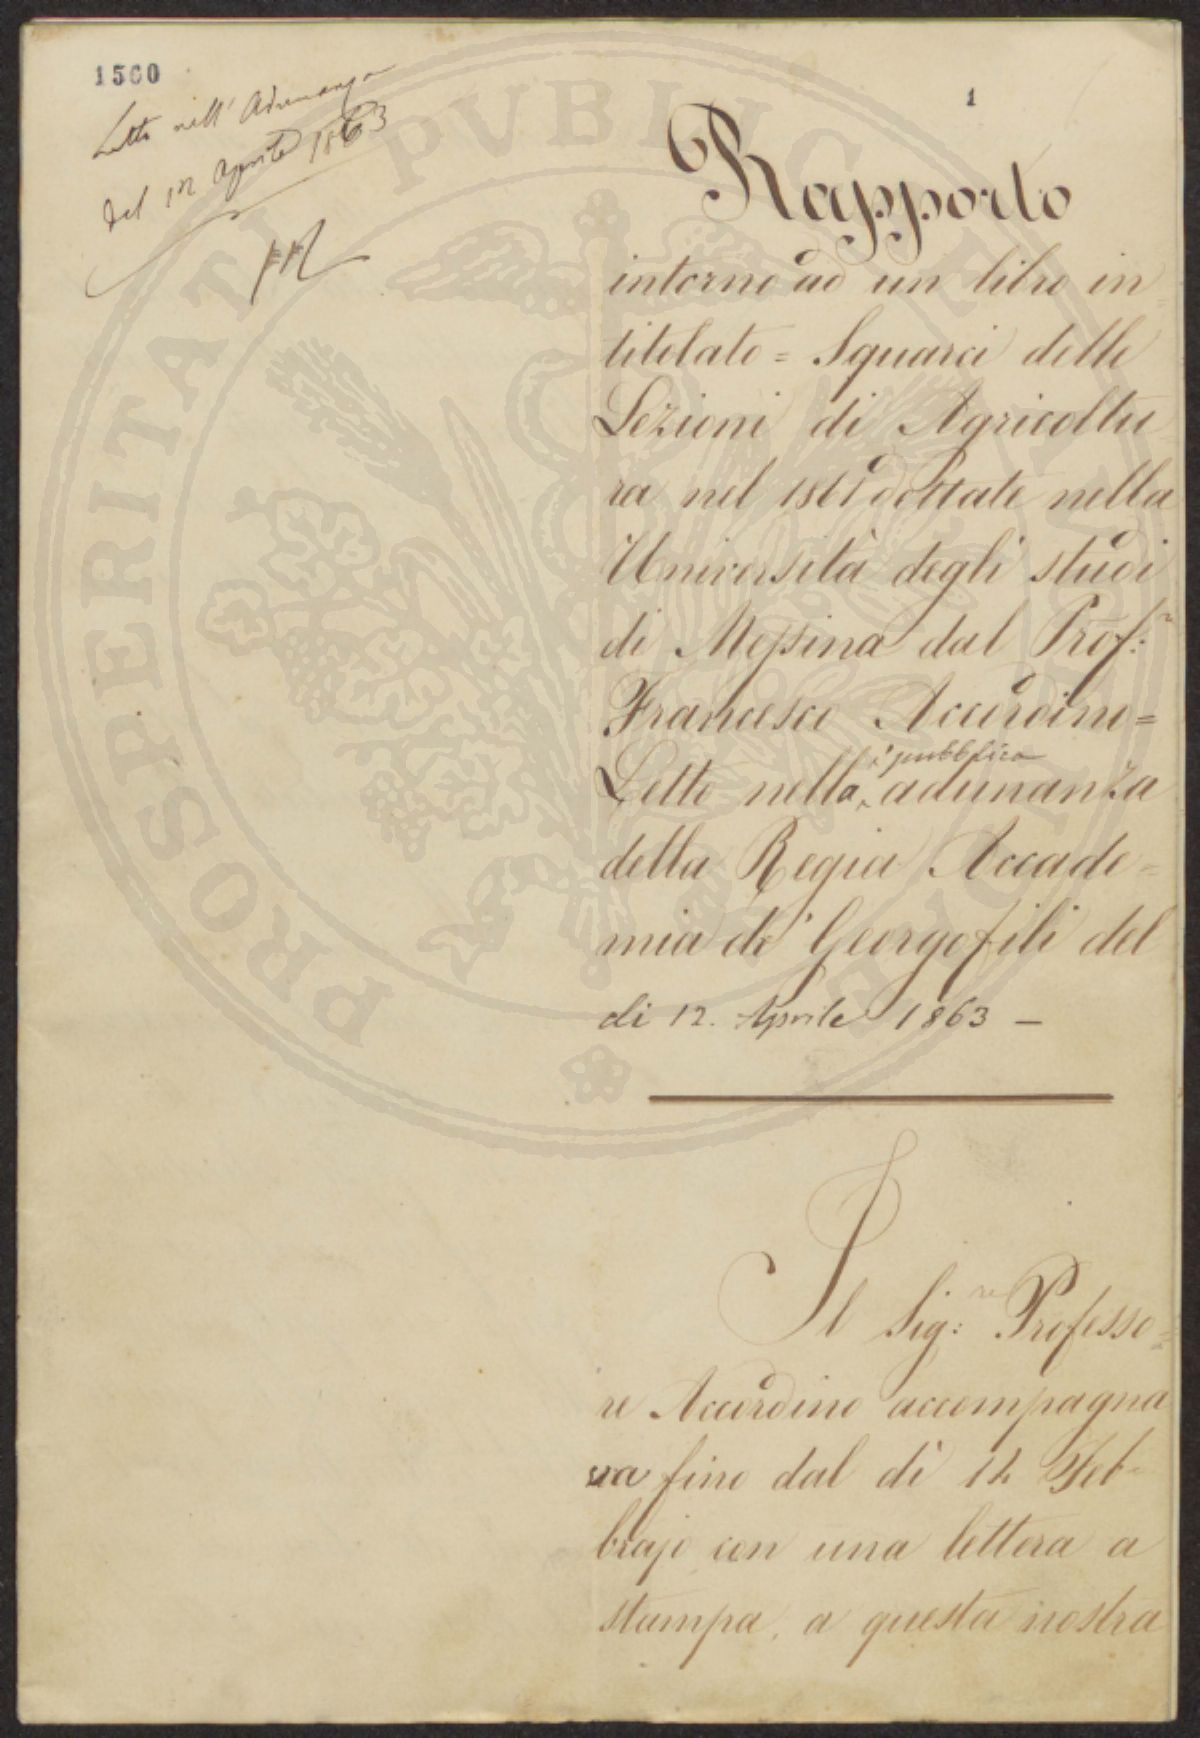 1560
Letto nell' Adunanza
del 12 Aprile 1863
1
Rapporto
intorno ad un libro in=
titolato = Squarci delle
Lezioni di Agricoltu
ra nel 1861 dettate nella
Università degli studi
di Messina dal Prof:
Francesco Accordino=
pubblica
Letto nella adunanza
della Regia Accade=
mia de' Georgofili del
di 12. Aprile 1863 —
Il Sig:re Professo=
re Accordino accompagna
va fino dal dì 12 Feb=
brajo con una lettera a
stampa, a questa nostra
PROSPERITATI PVBLICAE